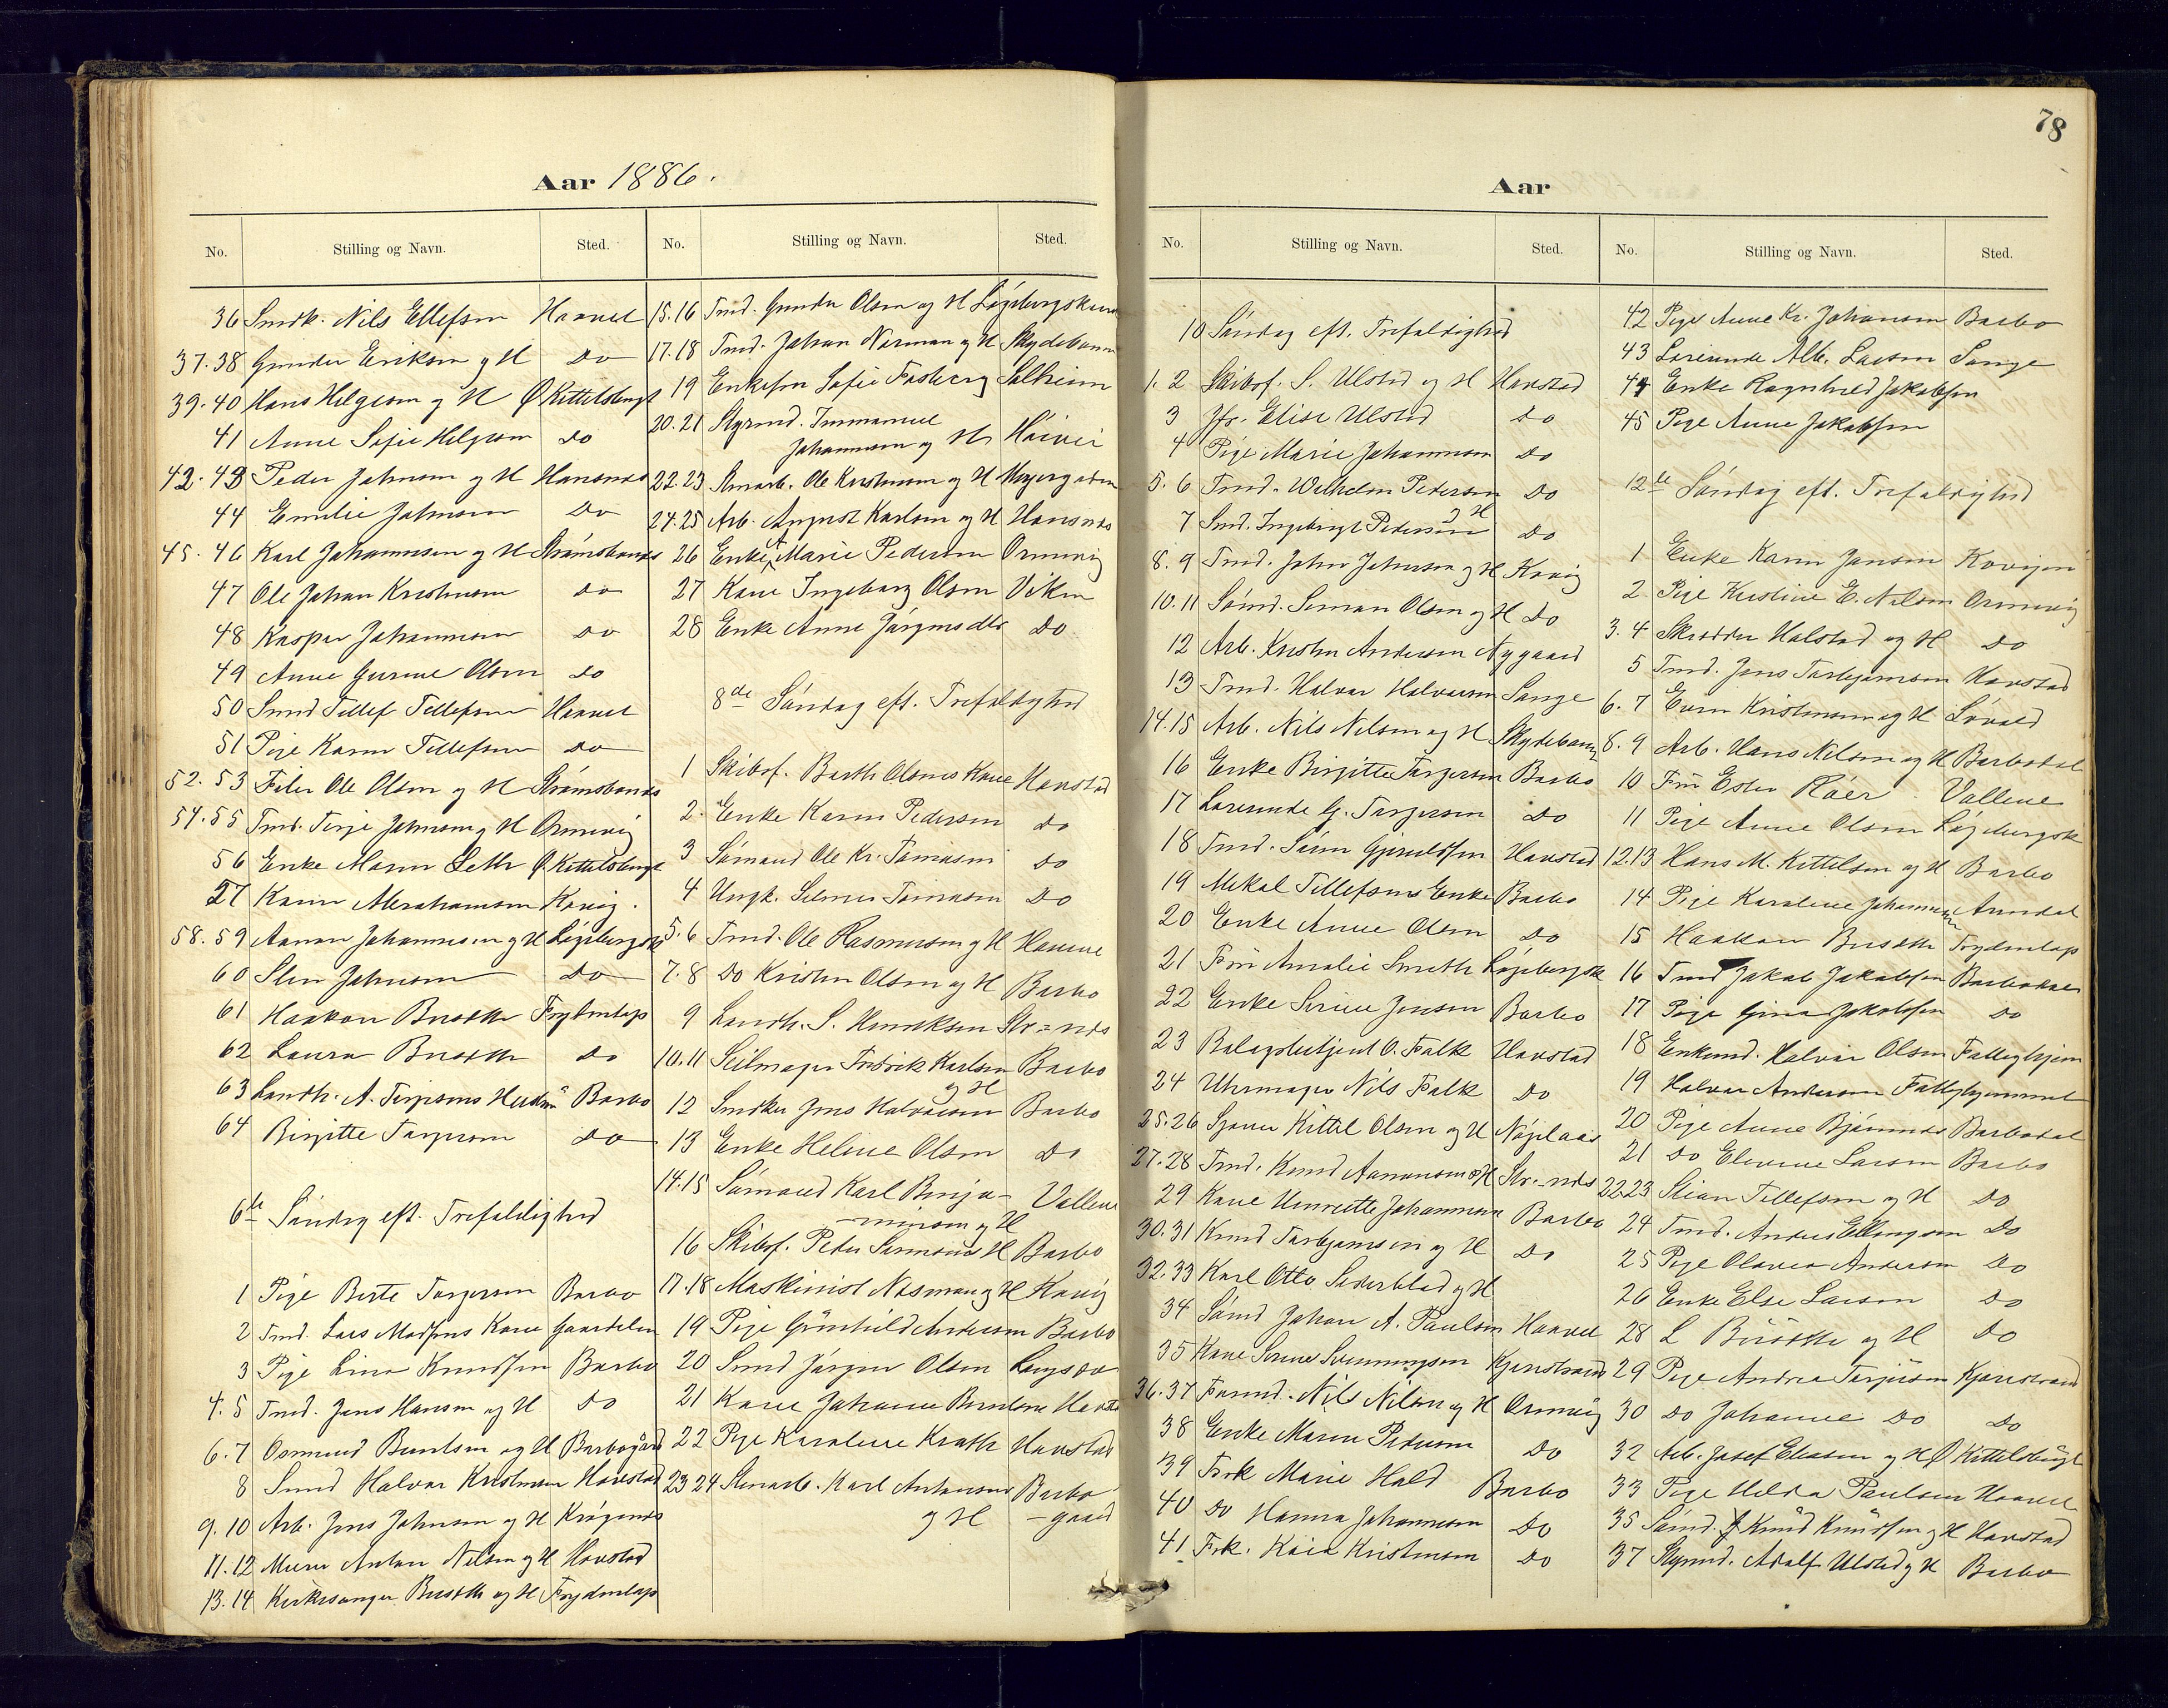 78
Aar 1886.
No. Stilling og Navn. Sted.
36 Smdk. Nils Ellefsen Haavet
37.38 Gunder Eriksen og H Do
39.40 Hans Helgesen og H Ø Kittelsbugt
41 Anne Sofie Helgesen Do
42.43 Peder Johnsen og H Hansnes
44 Emilie Johnsen Do
45.46 Karl Johannesen og H Strømsbunes
47 Ole Johan Kristensen Do
48 Kasper Johannesen Do
49 Anne Gurine Olsen Do
50 Smd Tellef Tellefsen Haavet
51 Pige Karen Tellefsen Do
52.53 Filer Ole Olsen og H Strømsbunes
54.55 Tmd. Terje Johnsen og H Ormevig
56 Enke Maren Leth Ø. Kittelsbugt
27 Karen Abrahamsen Kovig.
58.59 Aanon Johannesen og H Løgebergsk
60 Sten Johnsen Do
61 Haakon Busth Frydenlup
62 Laura Busth Do
63 Landh. A. Terjesens Barbo
64 Birgitte Torjersen Do
6te Søndag eft. Trefoldighed
1 Pige Berte Torjersen Barbo
2 Tmd. Lars Madsens Kone Gaardalen
3 Pige Lina Knudsen Barbo
4.5 Tmd. Jens Hansen og H Do
6.7 Osmund Bentsen og H Barbogård
8 Smd Halvor Kristensen Havstad
9.10 Arb. Jens Johnsen og H Krøgenes
11.12 Murer Anton Nilsen og H Havstad
13.14 Kirkesanger Busth og H Frydenlup
No. Stilling og Navn. Sted.
15.16 Tmd. Gunder Olsen og H Løgebergskaret
17.18 Tmd. Johan Norman og H Skydebanen
19 Enkefru Sofie Fosberg Solheim
20.21 Styrmd. Immanuel
Johannesen og H
22.23 Stenarb. Ole Kristensen og H Meyergaden
24.25 Arb. August Karlsen og H Hansnes
26 Enke Marie Pedersen Ormevig
27 Kone Ingeborg Olsen Viken
28 Enke Anne Jørgensdtr Do
8de Søndag eft. Trefoldighed
1 Skibsf. Barth Olsens Kone Havstad
2. Enke Karen Pedersen Do
3 Sømand Ole Kr. Tomasen Do
4 Ungk. Selmer Tomasen Do
5.6 Tmd. Ole Rasmussen og H Havene
7.8 Do Kristen Olsen og H Barbo
9 Landh. S. Henriksen Str=nds
10.11 Seilmager Fredrik Karlsen Barbo
og H
12 Snedker Jens Halvorsen Barbo
13 Enke Heline Olsen Do
14.15 Sømand Karl Benja- Vallene
minsen og H
16 Skibsf. Peder Sørensens H Barbo
17.18 Maskinist Nasman og H Kovig
19 Pige Gunhild Andersen Barbo
20 Smd Jørgen Olsen Langsæ
21 Kone Johanne Berntsen Havsta
22 Pige Karoline Krath Havstad
23 24 Stenarb. Karl Antonsen Barbo
og H -gaard
Aar
No. Stilling og Navn. Sted.
10 Søndag eft. Trefoldighed
1.2 Skibsf. S. Ulsted og H Havstad
3 Jfr. Elise Ulsted Do
4 Pige Marie Johannesen Do
5.6 Tmd. Wilhelm Pedersen Do
og H
7 Smd. Ingebrigt Pedersen Do
8.9 Tmd. John Johnsen og H Kovig
10.11 Sømd. Simon Olsen og H Do
12 Arb. Kristen Andersen Nygaard
13 Tmd. Halvor Halvorsen Songe
14.15 Arb. Nils Nilsen og H Skydebanen
16 Enke Birgitte Torjersen Barbo
17 Lærerinde G. Torjersen Do
18 Tmd. Søren Gjeruldsen Havstad
19 Mekal Tellefsens Enke Barbo
20 Enke Anne Olsen Do
21 Frø Amalie Smith Løgebergsk
22 Enke Serine Jensen Barbo
23 Ralagsbetjent O. Falk Havstad
24 Uhrmager Nils Falk Do
25.26 Sjauer Kittil Olsen og H Nøjelaas
27.28 Tmd. Knud Aanonsen og H Str=nds
29 Kone Henriette Johannesen Barbo
30.31 Knud Torbjørnsen og H Do
32.33 Karl Otto Sederblad og H
34 Sømd Johan A. Paulsen Haavet
35 Kone Serine Svenningsen Kjenstrand
36.37 Formd. Nils Nilsen og H Ormevig
38 Enke Maren Pedersen Do
39 Frk Marie Hald Barbo
40 Do Hanna Johannesen Do
41 Frk. Kaia Kristensen Do
No. Stilling og Navn. Sted.
42 Pige Anne Kr. Johansen Barbo
43 Lærerinde Alb. Larsen Songe
44 Enke Ragnhild Jakobsen
45 Pige Anne Jakobsen
12te Søndag eft. Trefoldighed
1 Enke Karen Jensen Kovigen
2 Pige Kirstine E. Nilsen Ormevig
3.4 Skrædder Halstad og H Do
5 Tmd. Jens Torbjørnsen Havstad
6.7 Even Kristensen og H Løvold
8.9 Arb. Hans Nilsen og H Barbodal
10 Frø Ester Röer Vallene
11 Pige Anne Olsen Løgebergsk
12.13 Hans M. Kittelsen og H Barbo
14 Pige Karoline Johannesen Arendal
15 Haakon Busth Frydenlup
16 Tmd Jakob Jakobsen Barbodal
17 Pige Gina Jakobsen Do
18 Enkemd. Halvor Olsen Fattighjem
19 Halvor Andersen Fattighjemmet
20 Pige Anne Bjørnnes Barbodal
21 Do Elevine Larsen Barbo
22.23 Stian Tellefsen og H Do
24 Tmd. Anders Ellingsen Do
25 Pige Olava Andersen Do
26 Enke Else Larsen Do
28 L Busth og H Do
29 Pige Andrea Terjesen Kjenstrand
30 Do Johanne Do Do
32 Arb. Josef Eliasen og H Ø Kittelsbugt
33 Pige Helda Paulsen Haavet
35 Sømd. Knud Knudsen og H Havstad
37 Styrmd. Adolf Ulsted og H Barbo